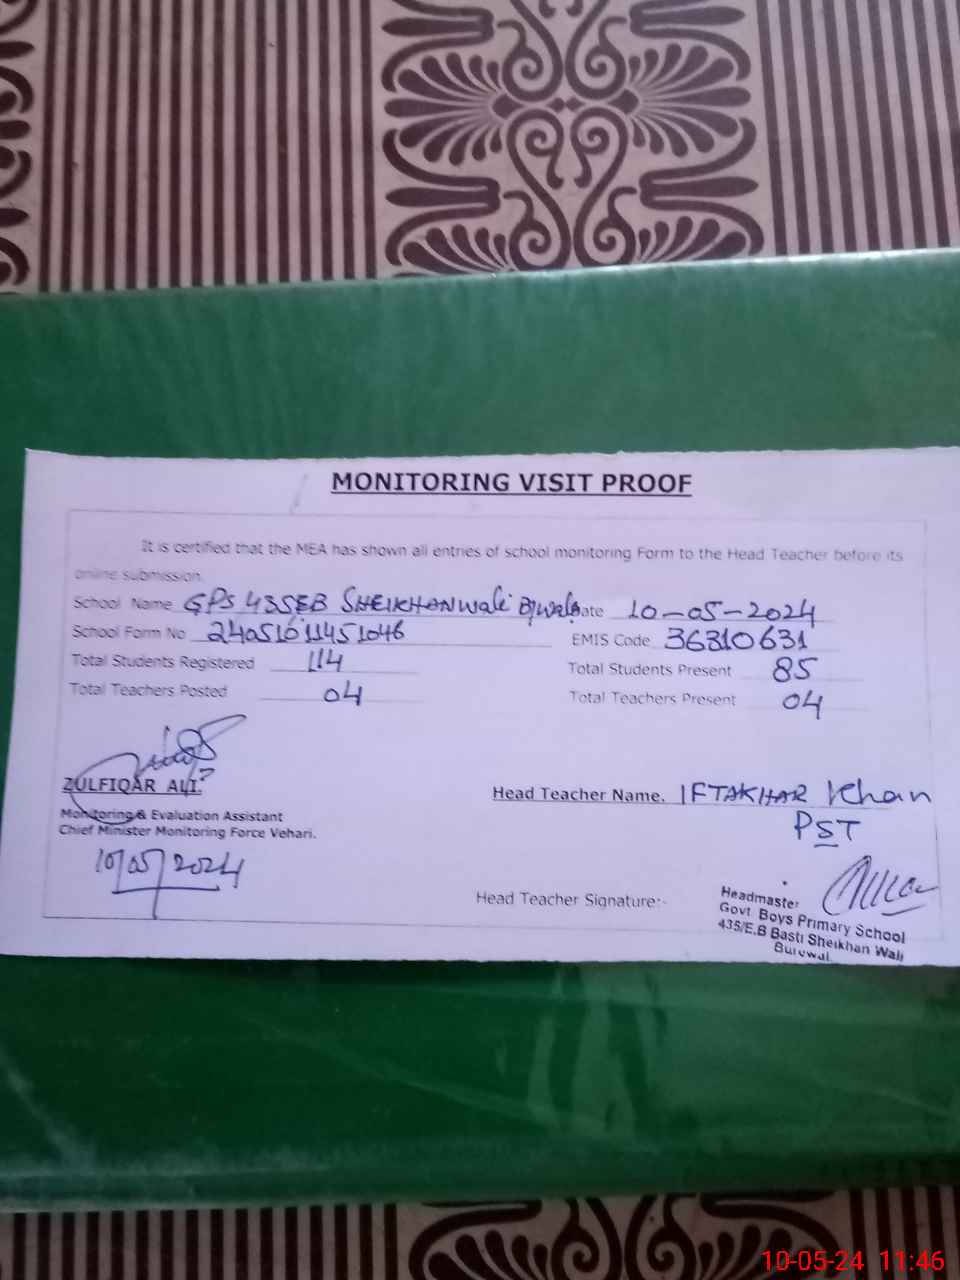 MONITORING VISIT PROOF
It is certified that the MEA has shown all entries of school monitoring Form to the Head Teacher before its
online submission.
School Name GPS 435EB SHEIKHANwali Bjwala Date 10-05-2024
School Form No 24051011451046 EMIS Code 36310631
Total Students Registered 114 Total Students Present 85
Total Teachers Posted 04 Total Teachers Present 04
ZULFIQAR ALI.
Monitoring & Evaluation Assistant
Chief Minister Monitoring Force Vehari.
10/05/2024
Head Teacher Name. IFTAKHAR Khan
PST
Head Teacher Signature:-
Headmaster
Govt. Boys Primary School
435/E.B Basti Sheikhan Wali
Burewal.
10-05-24 11:46